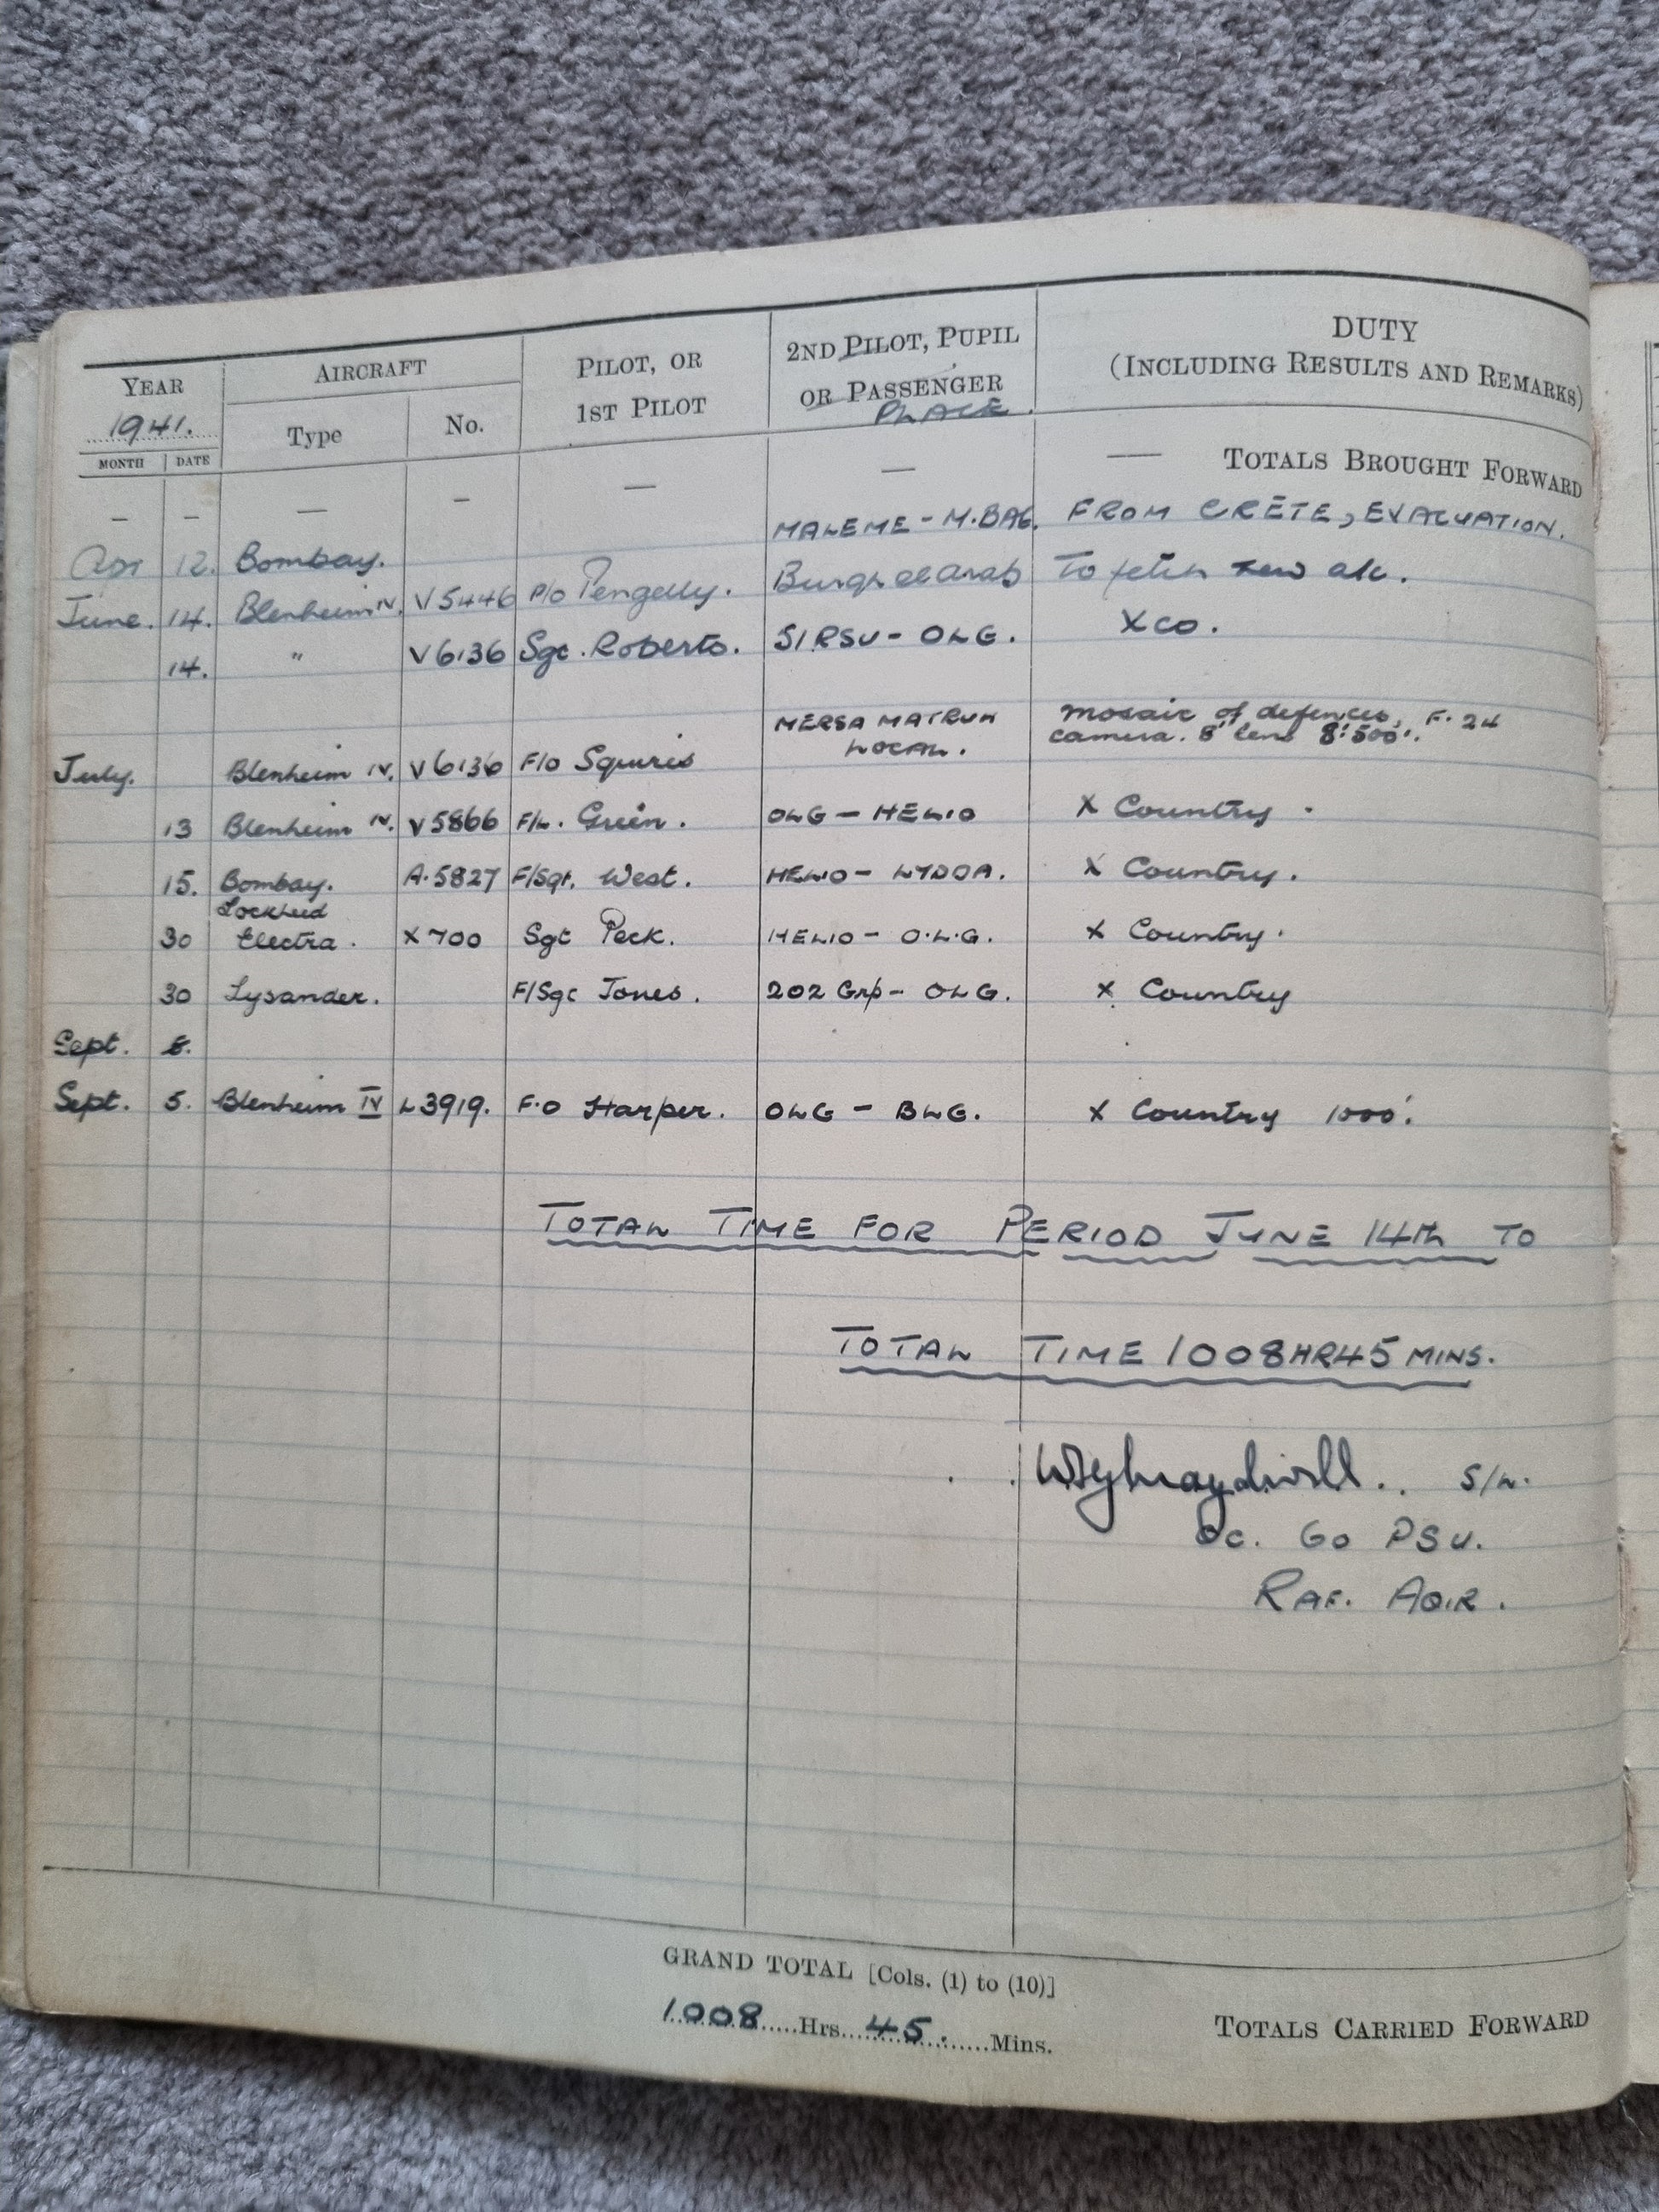 YEAR AIRCRAFT PILOT, OR 2ND PILOT, PUPIL DUTY
1941. Type No. 1ST PILOT OR PASSENGER (INCLUDING RESULTS AND REMARKS)
PLACE.
MONTH DATE
— — — — — — — TOTALS BROUGHT FORWARD
Apr 12. Bombay. MALEME - M.BAG. FROM CRETE, EVACUATION.
June. 14. Blenheim IV. V5446 P/O Pengelly. Burgh el arab To fetch new a/c.
14. " V6136 Sgt. Roberts. SIRSU - OLG. X co.
July. Blenheim IV. V6136 F/O Squires MERSA MATRUH LOCAL. Mosaic of defences, F.24
camera. 8" lens 8'500'.
13 Blenheim IV. V5866 F/L. Green. OLG - HELIO X Country.
15. Bombay. A.5827 F/Sgt. West. HELIO - LYDDA. X Country.
30 Lockheed Electra. X700 Sgt Peck. HELIO - O.L.G. X Country.
30 Lysander. F/Sgt Jones. 202 Grp - OLG. X Country
Sept.
Sept. 5. Blenheim IV L3919. F.O Harper. OLG - BLG. X Country 1000'.
TOTAL TIME FOR PERIOD JUNE 14th TO
TOTAL TIME 1008HR45 MINS.
S/L.
OC. 60 PSU.
RAF. AQIR.
GRAND TOTAL [Cols. (1) to (10)]
1008 Hrs 45. Mins.
TOTALS CARRIED FORWARD